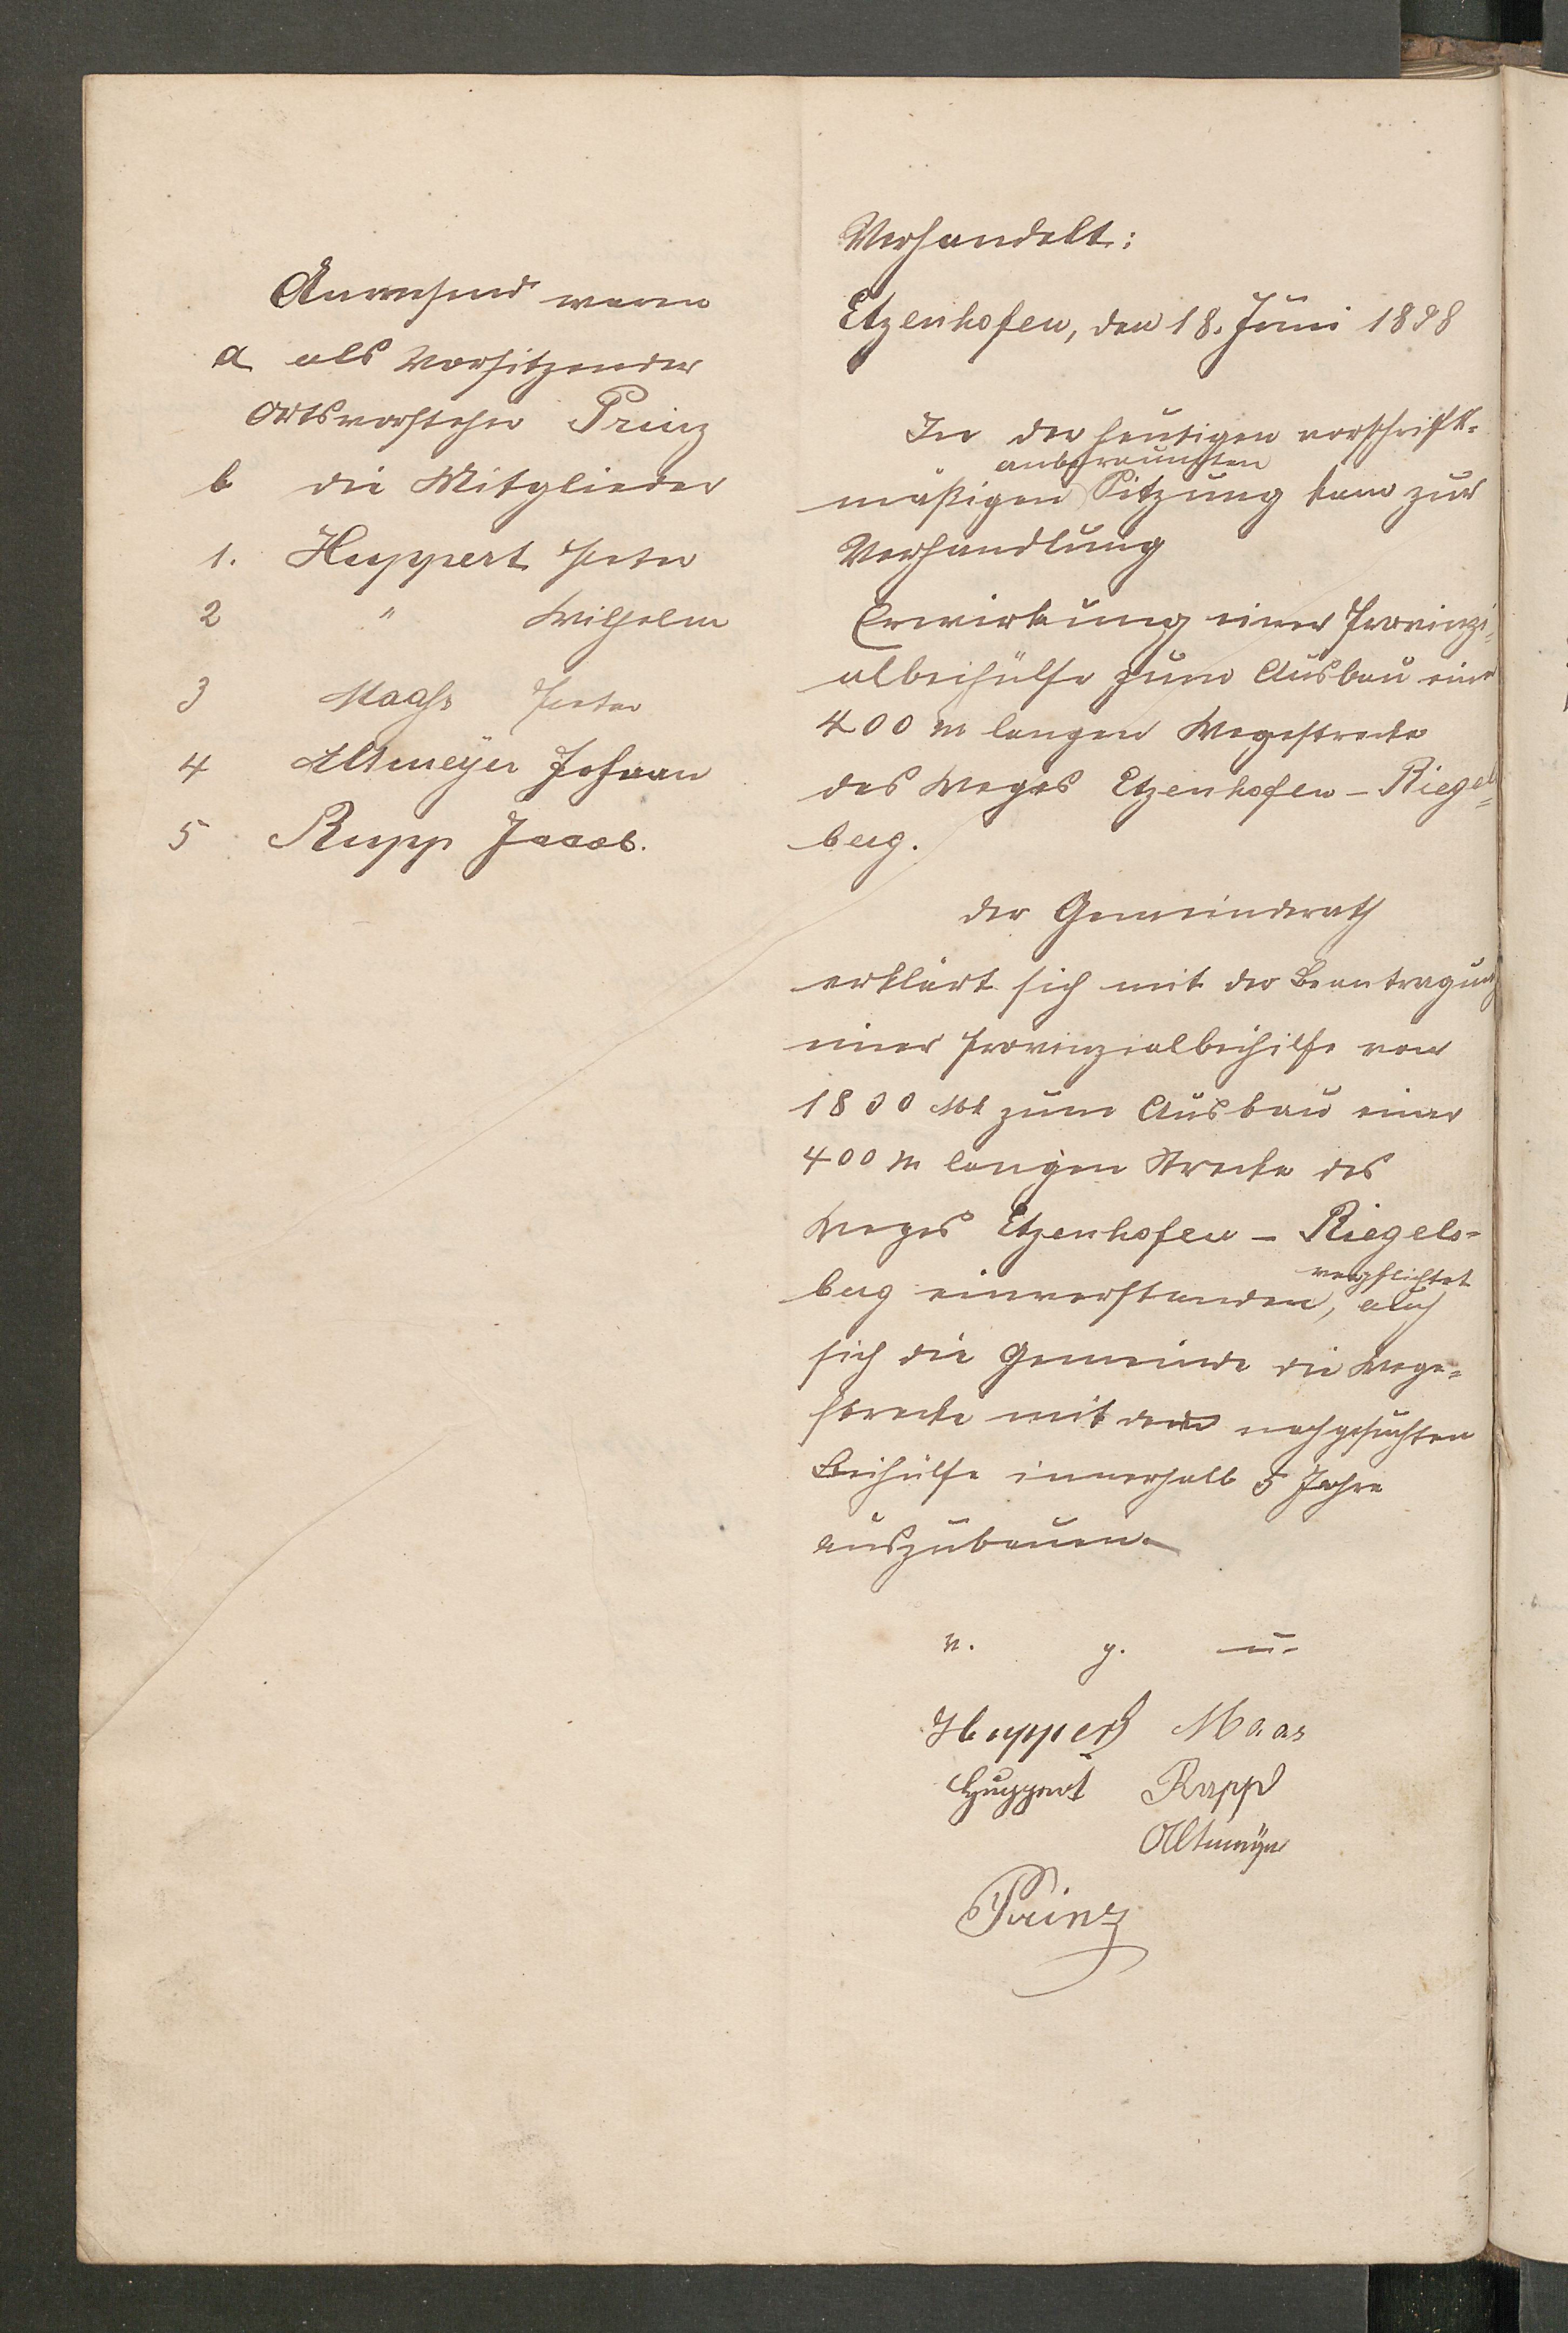 Anwesend waren
a als Vorsitzender
Ortsvorsteher Prinz
b die Mitglieder
1. Huppert Peter
2 " Wilhelm
3 Maaß Peter
4 Altmeÿer Johann
5 Rupp Jacob.
Verhandelt:
Etzenhofen, den 18. Juni 1898
In der heutigen vorschrift-
anberaumten
mäßigen Sitzung kam zur
Verhandlung
Erwirkung einer Provinzi-
albeihülfe zum Ausbau einer
400 m langen Wegestrecke
des Weges Etzenhofen - Riegel=
berg.
der Gemeinderath
erklärt sich mit der Beantragung
einer Provinzialbeihilfe von
1800 Mk zum Ausbau einer
400 m langen Strecke des
Weges Etzenhofen - Riegels-
verpflichtet
berg einverstanden, auch
sich die Gemeinde die Wege-
strecke mit der nachgesuchten
Beihülfe innerhalb 5 Jahre
auszubauen.
v. g. u.
Huppert Maas
Huppert Rupp
Altmeÿer
Prinz